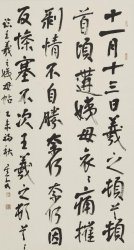 十一月十三日羲之頓首頓
首頃遘姨母哀哀痛摧
剝情不自勝奈何奈何因
反慘塞不次王羲之頓首
王羲之姨母帖 乙未 秋